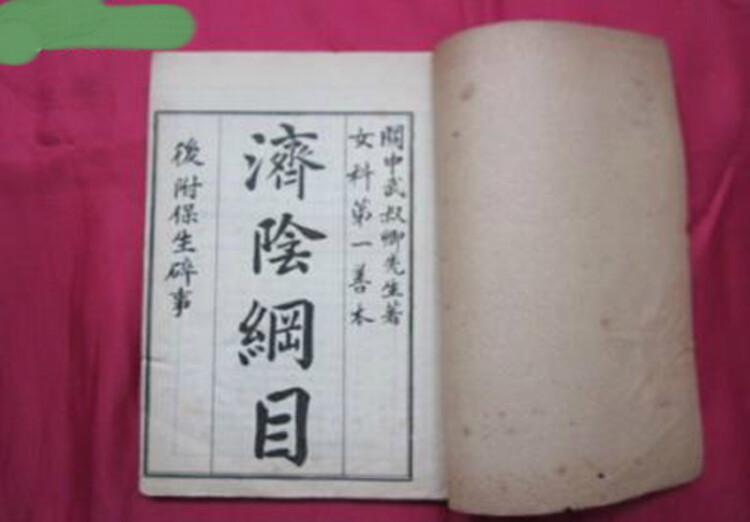 關中武叔卿先生著
女科第一善本
濟陰綱目
後附保生碎事